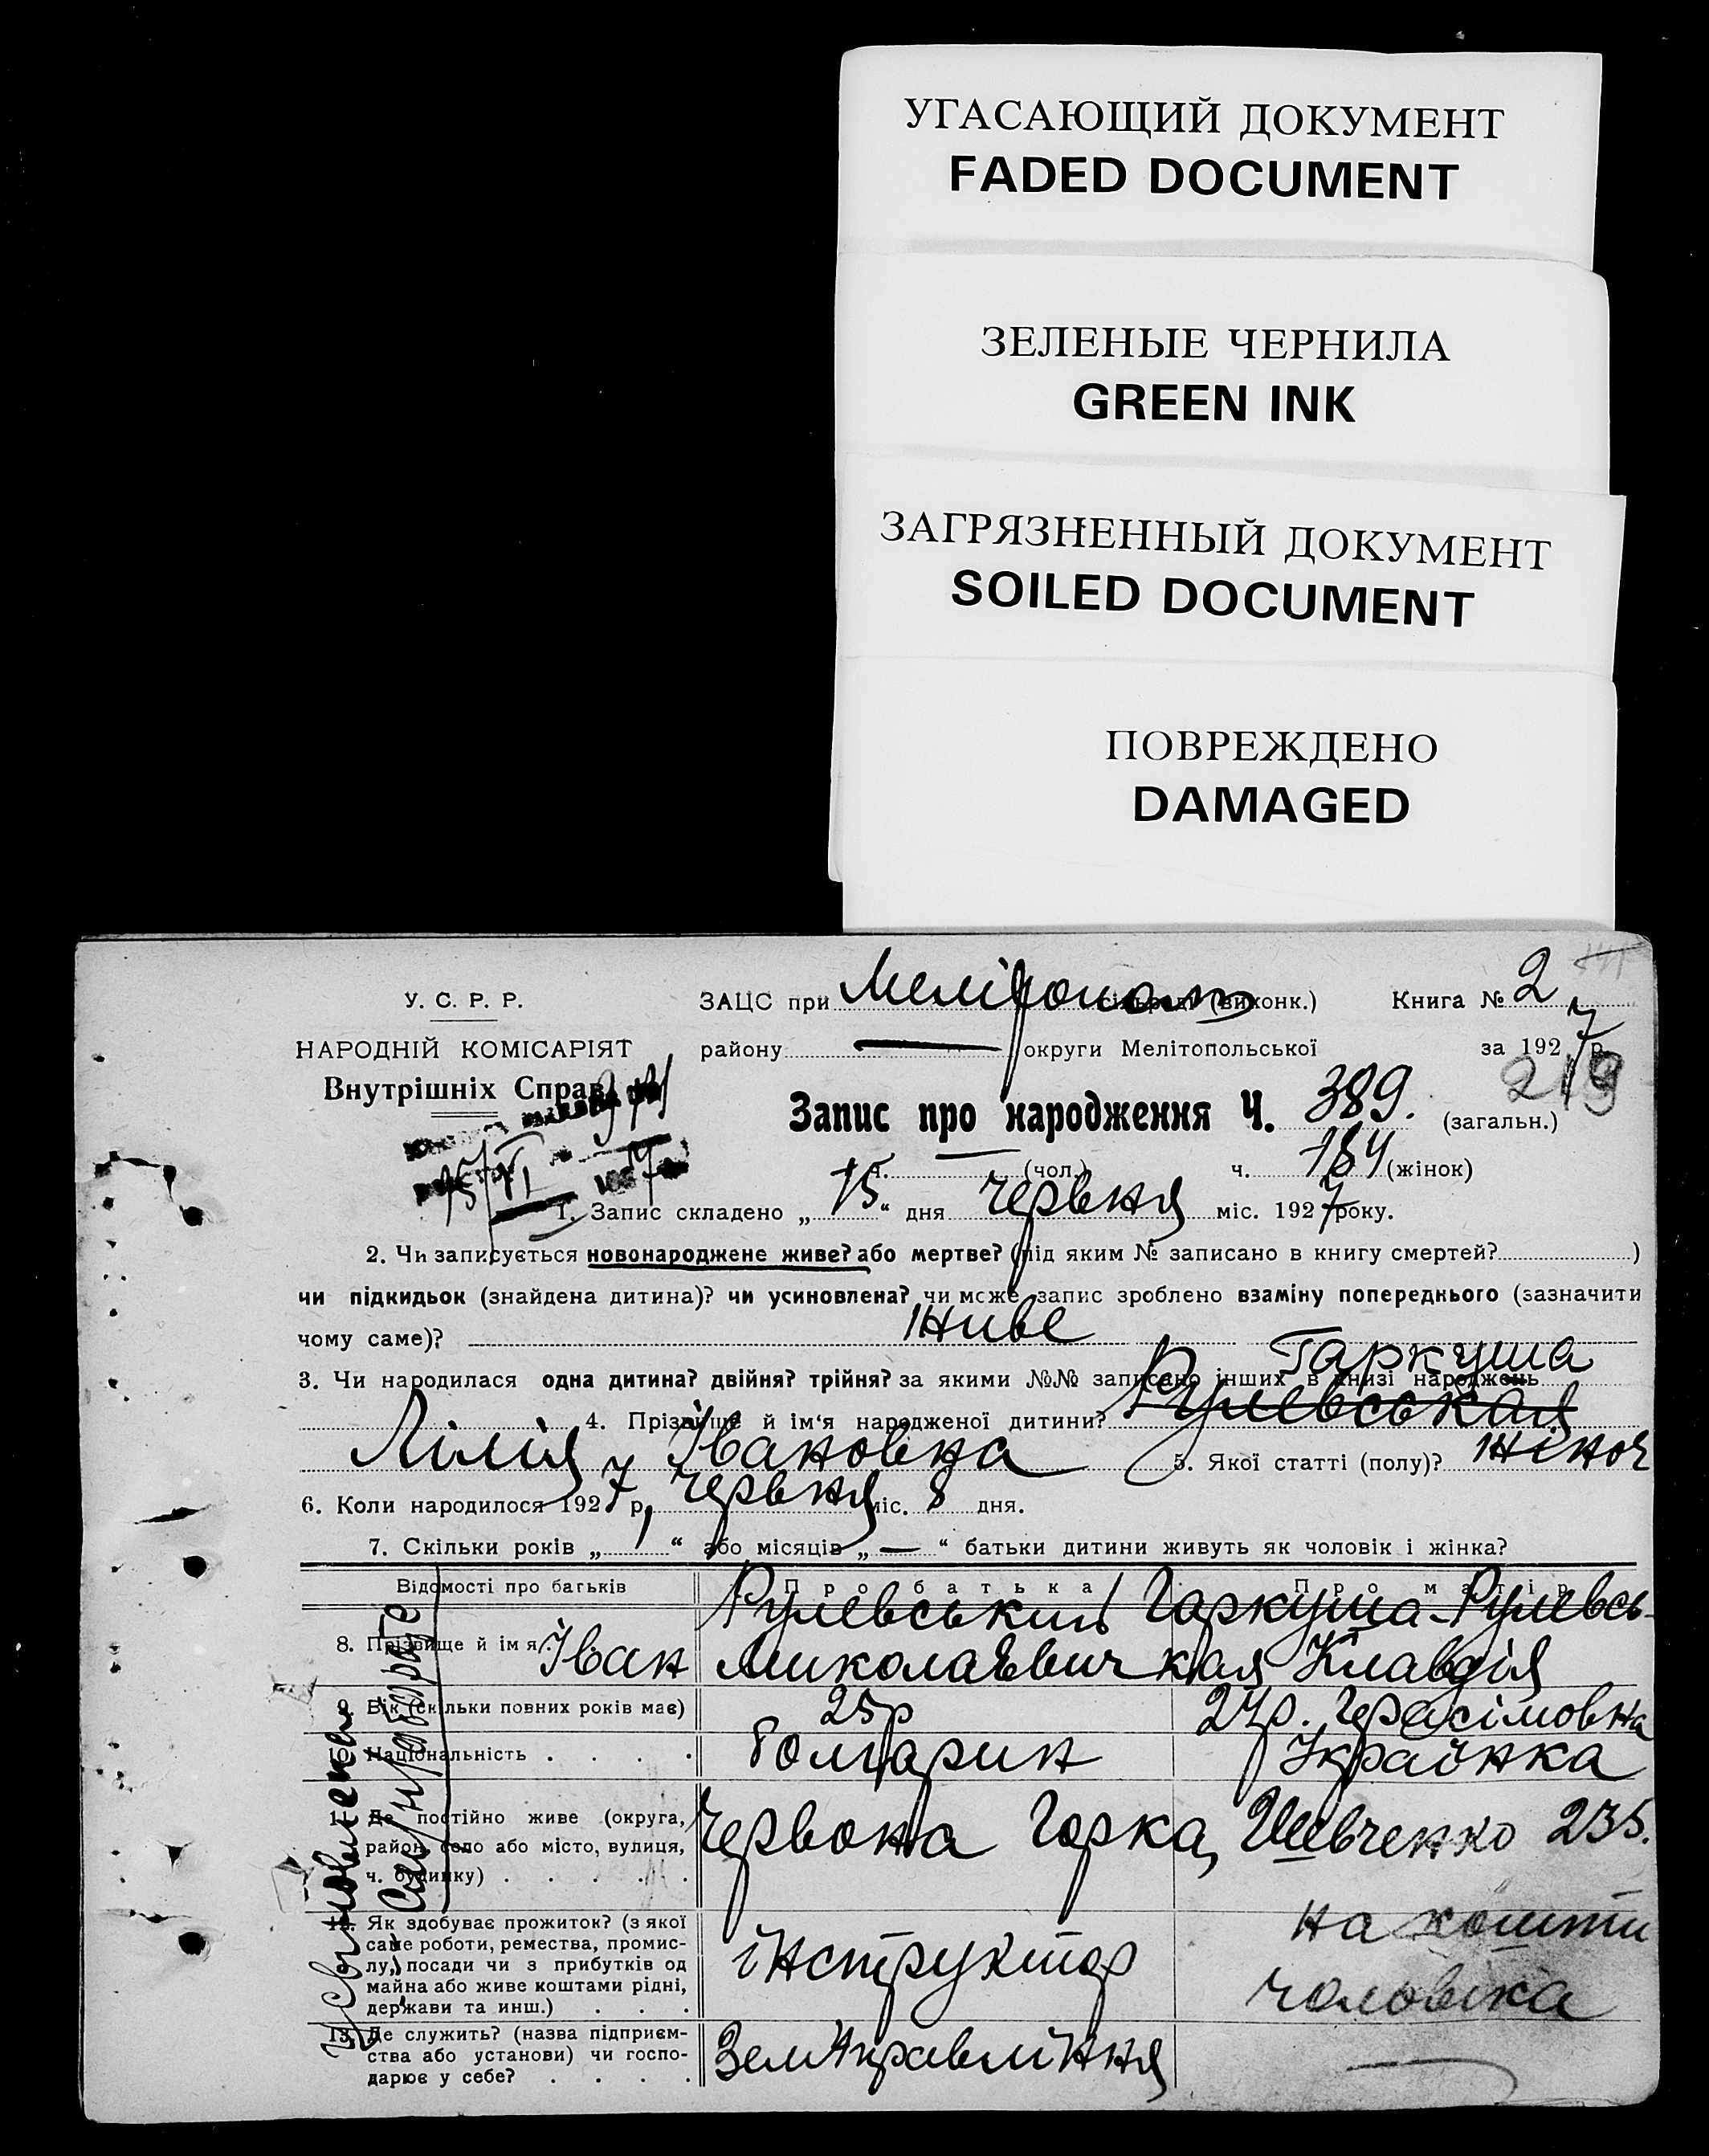 УГАСАЮЩИЙ ДОКУМЕНТ
FADED DOCUMENT
ЗЕЛЕНЫЕ ЧЕРНИЛА
GREEN INK
ЗАГРЯЗНЕННЫЙ ДОКУМЕНТ
SOILED DOCUMENT
ПОВРЕЖДЕНО
DAMAGED
У. С. Р. Р.
НАРОДНІЙ КОМІСАРІЯТ
Внутрішніх Справ
ЗАЦС при Мелітополь сільраді (виконк.) Книга № 2
району — округи Мелітопольської за 1927 р.
219
Запис про народження Ч. 389. (загальн.)
ч. — (чол.) ч. 184 (жінок)
1. Запис складено „ 15 “ дня червня міс. 1927 року.
2. Чи записується новонароджене живе? або мертве? (під яким № записано в книгу смертей? )
чи підкидьок (знайдена дитина)? чи усиновлена? чи може запис зроблено взаміну попереднього (зазначити
чому саме)? живе
3. Чи народилася одна дитина? двійня? трійня? за якими №№ записано інших в книзі народжень
Гаркуша
4. Прізвище й ім‘я народженої дитини? Рулевськая
Лілія Івановна 5. Якої статті (полу)? жіноч
6. Коли народилося 1927 р. червня міс. 8 дня.
7. Скільки років „ 1 “ або місяців „ — “ батьки дитини живуть як чоловік і жінка?
Відомості про батьків Про батька Про матір
8. Прізвище й ім‘я Рулевський Іван Миколаєвич Гаркуша-Рулевськая Клавдія
9. Вік (скільки повних років має) 25р 24р. Герасімовна
10. Національність . . . . Болгарин Українка
11. Де постійно живе (округа, район, село або місто, вулиця, ч. будинку) . . . . . Червона Горка, Шевченко 235.
12. Як здобуває прожиток? (з якої саме роботи, ремества, промислу, посади чи з прибутків од майна або живе коштами рідні, держави та инш.) . . . інструктор на кошти чоловіка
13. Де служить? (назва підприємства або установи) чи господарює у себе? . . . . ЗемУправління —